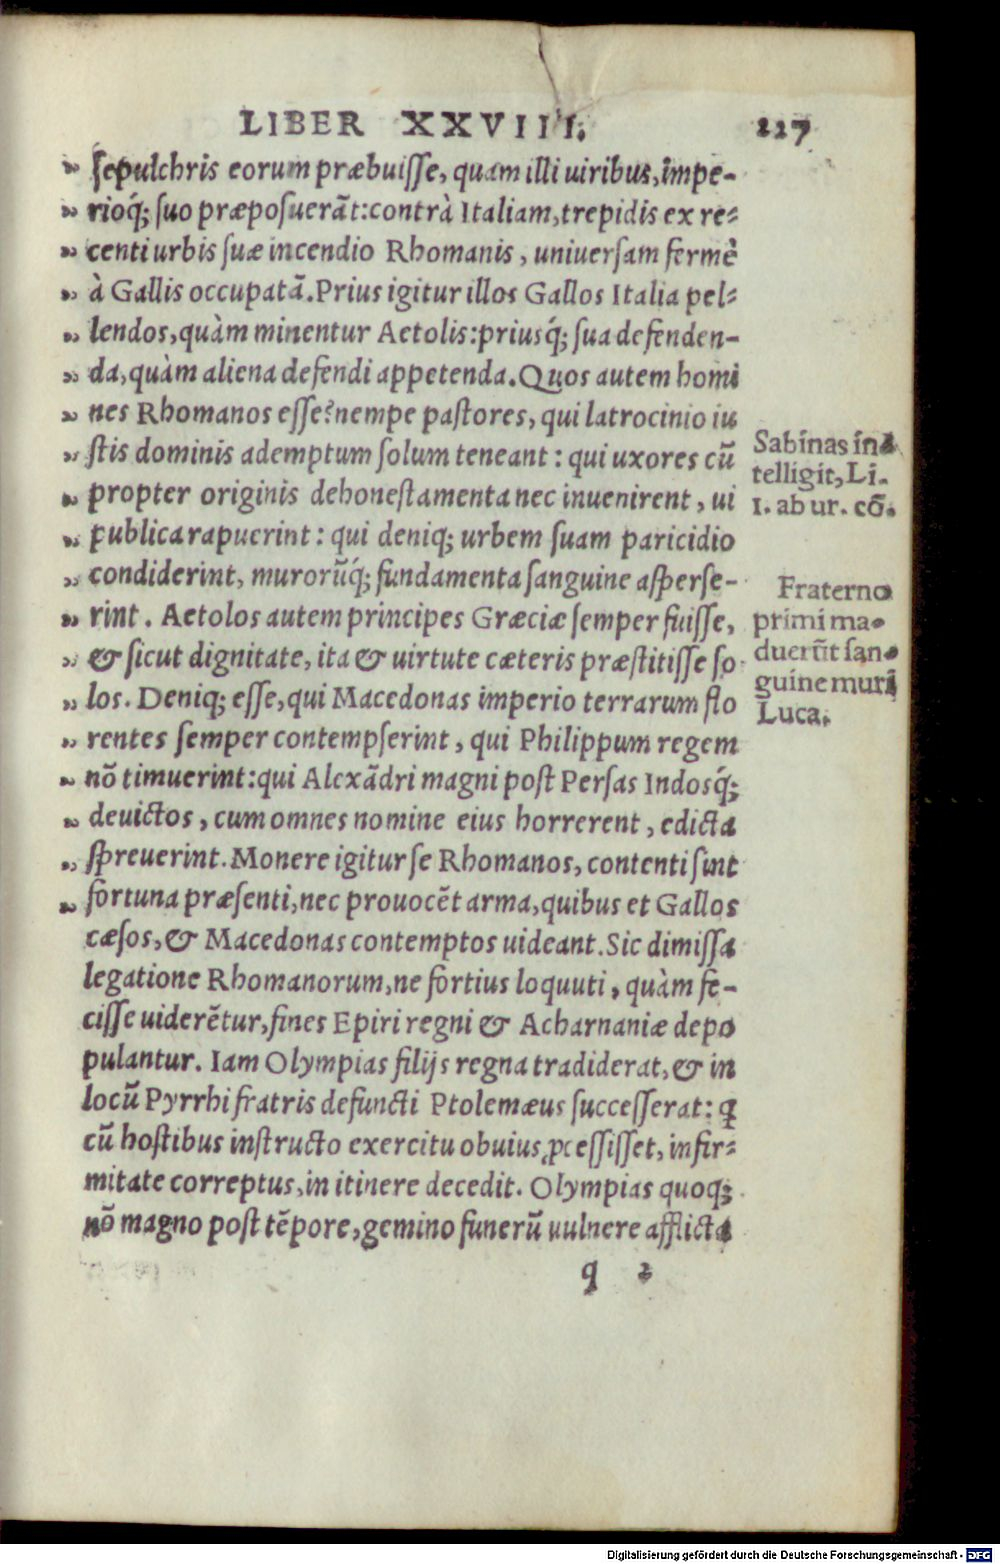 LIBER XXVIII. 227
„ ſepulchris eorum præbuiſſe, quam illi uiribus, impe-
„ rioq́; ſuo præpoſuerāt: contrà Italiam, trepidis ex re-
„ centi urbis ſuæ incendio Rhomanis, uniuerſam fermè
„ à Gallis occupatā. Prius igitur illos Gallos Italia pel-
„ lendos, quàm minentur Aetolis: priusq́; ſua defenden-
„ da, quàm aliena defendi appetenda. Quos autem homi
„ nes Rhomanos eſſe? nempe paſtores, qui latrocinio iu
„ ſtis dominis ademptum ſolum teneant: qui uxores cū
„ propter originis dehoneſtamenta nec inuenirent, ui
„ publica rapuerint: qui deniq; urbem ſuam paricidio
„ condiderint, murorūq́; fundamenta ſanguine aſperſe-
„ rint. Aetolos autem principes Græciæ ſemper fuiſſe,
„ & ſicut dignitate, ita & uirtute cæteris præſtitiſſe ſo
„ los. Deniq; eſſe, qui Macedonas imperio terrarum flo
„ rentes ſemper contempſerint, qui Philippum regem
„ nō timuerint: qui Alexādri magni poſt Perſas Indosq́;
„ deuictos, cum omnes nomine eius horrerent, edicta
„ ſpreuerint. Monere igitur ſe Rhomanos, contenti ſint
„ fortuna præſenti, nec prouocēt arma, quibus et Gallos
cæſos, & Macedonas contemptos uideant. Sic dimiſſa
legatione Rhomanorum, ne fortius loquuti, quàm fe-
ciſſe uiderētur, fines Epiri regni & Acharnaniæ depo
pulantur. Iam Olympias filijs regna tradiderat, & in
locū Pyrrhi fratris defuncti Ptolemæus ſucceſſerat: q̃
cū hoſtibus inſtructo exercitu obuius ꝓceſſiſſet, infir-
mitate correptus, in itinere decedit. Olympias quoq;
nō magno poſt tēpore, gemino funerū uulnere afflicta
q 2
Sabinas in-
telligit, Li.
1. ab ur. cō.
Fraterno
primi ma-
duerūt ſan-
guine muri
Luca.
Digitalisierung gefördert durch die Deutsche Forschungsgemeinschaft - DFG